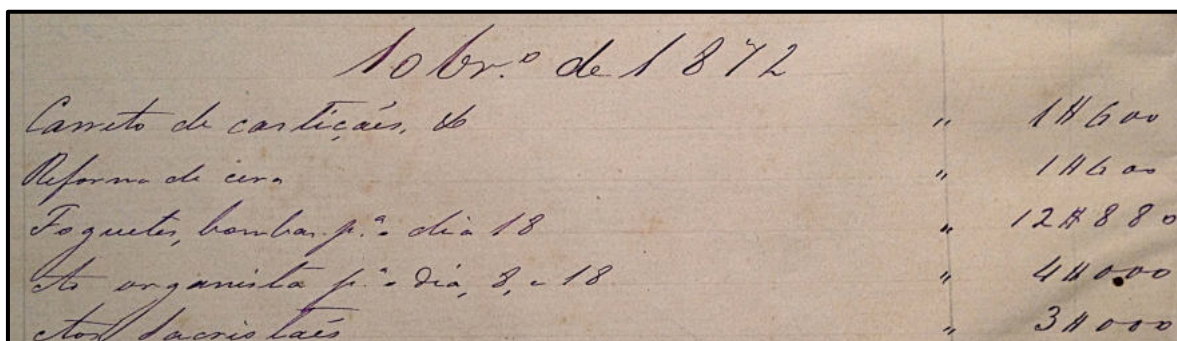 10br.º de 1872
Carreto de castiçáes, &  "  1$600
Reforma de cera  "  1$600
Foguetes, bombas p.ª o dia 18  "  12$880
Ao organista p.ª o dia, 8, e 18  "  4$000
Aos Sacristaés  "  3$000